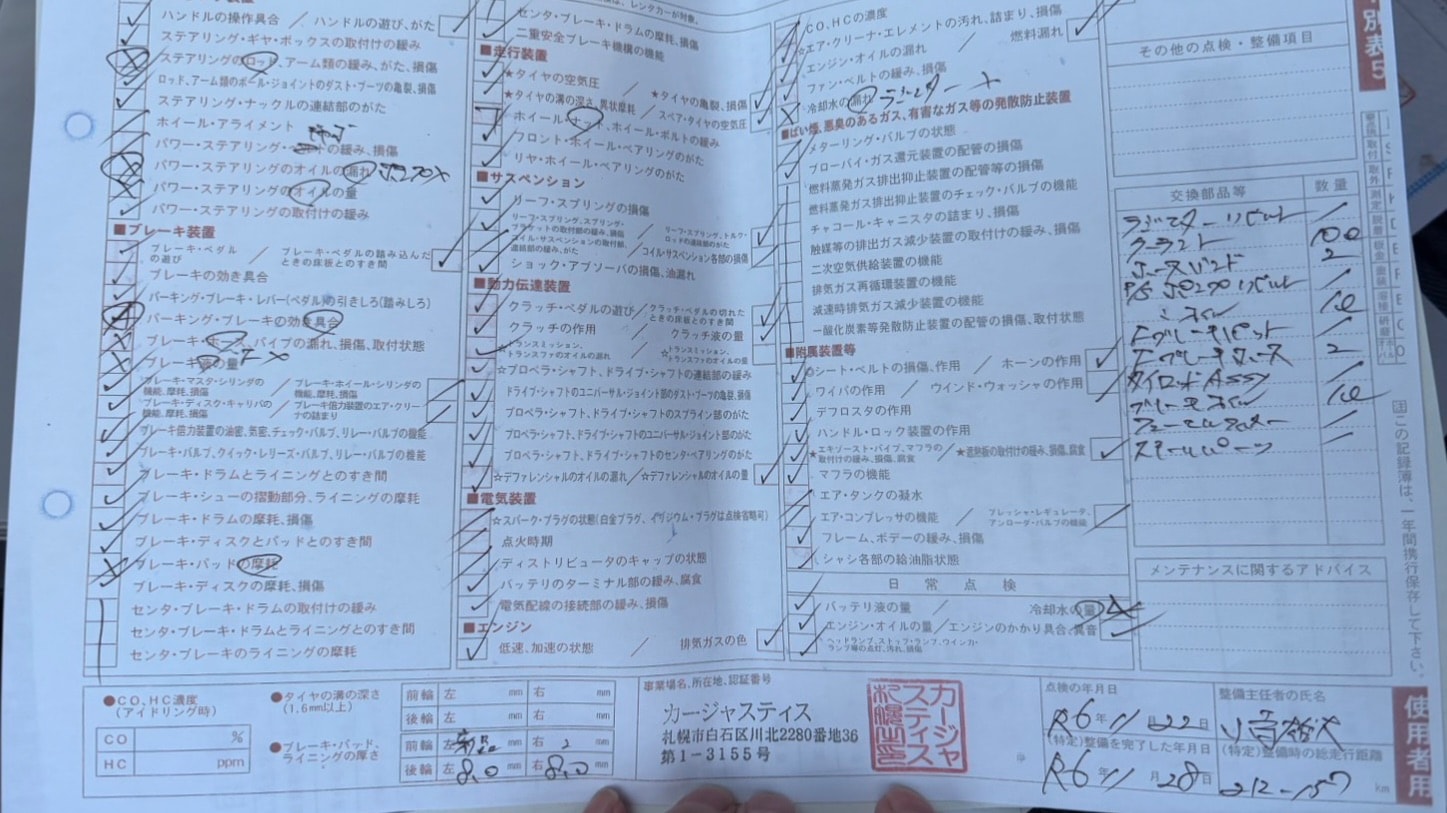 ハンドルの操作具合 / ハンドルの遊び、がた
ステアリング・ギヤ・ボックスの取付けの緩み
ステアリングのロッド、アーム類の緩み、がた、損傷
ロッド、アーム類のボール・ジョイントのダスト・ブーツの亀裂、損傷
ステアリング・ナックルの連結部のがた
ホイール・アライメント
パワー・ステアリング・ の緩み、損傷
パワー・ステアリングのオイルの漏れ
パワー・ステアリングのオイルの量
パワー・ステアリングの取付けの緩み
■ブレーキ装置
ブレーキ・ペダルの遊び / ブレーキ・ペダルの踏み込んだときの床板とのすき間
ブレーキの効き具合
パーキング・ブレーキ・レバー(ペダル)の引きしろ(踏みしろ)
パーキング・ブレーキの効き具合
ブレーキ・ホース、パイプの漏れ、損傷、取付状態
ブレーキ液の量
ブレーキ・マスタ・シリンダの機能、摩耗、損傷 / ブレーキ・ホイール・シリンダの機能、摩耗、損傷
ブレーキ・ディスク・キャリパの機能、摩耗、損傷 / ブレーキ倍力装置のエア・クリーナの詰まり
ブレーキ倍力装置の油密、気密、チェック・バルブ、リレー・バルブの機能
ブレーキ・バルブ、クイック・レリーズ・バルブ、リレー・バルブの機能
ブレーキ・ドラムとライニングとのすき間
ブレーキ・シューの摺動部分、ライニングの摩耗
ブレーキ・ドラムの摩耗、損傷
ブレーキ・ディスクとパッドとのすき間
ブレーキ・パッドの摩耗
ブレーキ・ディスクの摩耗、損傷
センタ・ブレーキ・ドラムの取付けの緩み
センタ・ブレーキ・ドラムとライニングとのすき間
センタ・ブレーキのライニングの摩耗
レンタカーが対象。
センタ・ブレーキ・ドラムの摩耗、損傷
二重安全ブレーキ機構の機能
■走行装置
★タイヤの空気圧 / ★タイヤの亀裂、損傷
★タイヤの溝の深さ、異状摩耗 / スペア・タイヤの空気圧
ホイール・ナット、ホイール・ボルトの緩み
フロント・ホイール・ベアリングのがた
リヤ・ホイール・ベアリングのがた
■サスペンション
リーフ・スプリングの損傷
リーフ・スプリング、スプリング・ブラケットの取付部の緩み、損傷 / リーフ・スプリング、トルク・ロッドの連結部のがた
コイル・サスペンションの取付部、連結部の緩み、がた / コイル・サスペンション各部の損傷
ショック・アブソーバの損傷、油漏れ
■動力伝達装置
クラッチ・ペダルの遊び / クラッチ・ペダルの切れたときの床板とのすき間
クラッチの作用 / クラッチ液の量
☆トランスミッション、トランスファのオイルの漏れ / ☆トランスミッション、トランスファのオイルの量
☆プロペラ・シャフト、ドライブ・シャフトの連結部の緩み
ドライブ・シャフトのユニバーサル・ジョイント部のダスト・ブーツの亀裂、損傷
プロペラ・シャフト、ドライブ・シャフトのスプライン部のがた
プロペラ・シャフト、ドライブ・シャフトのユニバーサル・ジョイント部のがた
プロペラ・シャフト、ドライブ・シャフトのセンタ・ベアリングのがた
☆デファレンシャルのオイルの漏れ / ☆デファレンシャルのオイルの量
■電気装置
☆スパーク・プラグの状態(白金プラグ、イリジウム・プラグは点検省略可)
点火時期
ディストリビュータのキャップの状態
バッテリのターミナル部の緩み、腐食
電気配線の接続部の緩み、損傷
■エンジン
低速、加速の状態 / 排気ガスの色
CO、HCの濃度
☆エア・クリーナ・エレメントの汚れ、詰まり、損傷
エンジン・オイルの漏れ / 燃料漏れ
ファン・ベルトの緩み、損傷
冷却水の漏れ ラジエター
■ばい煙、悪臭のあるガス、有害なガス等の発散防止装置
メターリング・バルブの状態
ブローバイ・ガス還元装置の配管の損傷
燃料蒸発ガス排出抑止装置の配管等の損傷
燃料蒸発ガス排出抑止装置のチェック・バルブの機能
チャコール・キャニスタの詰まり、損傷
触媒等の排出ガス減少装置の取付けの緩み、損傷
二次空気供給装置の機能
排気ガス再循環装置の機能
減速時排気ガス減少装置の機能
一酸化炭素等発散防止装置の配管の損傷、取付状態
■附属装置等
シート・ベルトの損傷、作用 / ホーンの作用
ワイパの作用 / ウインド・ウォッシャの作用
デフロスタの作用
ハンドル・ロック装置の作用
★エキゾースト・パイプ、マフラの取付けの緩み、損傷、腐食 / ★遮熱板の取付けの緩み、損傷、腐食
マフラの機能
エア・タンクの凝水
エア・コンプレッサの機能 / プレッシャ・レギュレータ、アンローダ・バルブの機能
フレーム、ボデーの緩み、損傷
シャシ各部の給油脂状態
日常点検
バッテリ液の量 / 冷却水の量
エンジン・オイルの量 / エンジンのかかり具合、異音
ヘッドランプ、ストップ・ランプ、ウインカ・ランプ等の点灯、汚れ、損傷
その他の点検・整備項目
交換部品等 数量
クーラント
ホースバンド 2
タイロッドASSY
ブレーキオイル
メンテナンスに関するアドバイス
別表5
注この記録簿は、一年間携行保存して下さい。
使用者用
●CO、HC濃度
(アイドリング時)
CO %
HC ppm
●タイヤの溝の深さ
(1.6mm以上)
前輪 左 mm 右 mm
後輪 左 mm 右 mm
●ブレーキ・パッド、
ライニングの厚さ
前輪 左 新品 mm 右 mm
後輪 左 8.0 mm 右 8.0 mm
事業場名、所在地、認証番号
カージャスティス
札幌市白石区川北2280番地36
第1-3155号
点検の年月日
R6年11月22日
(特定)整備を完了した年月日
R6年11月28日
整備主任者の氏名
(特定)整備時の総走行距離
km